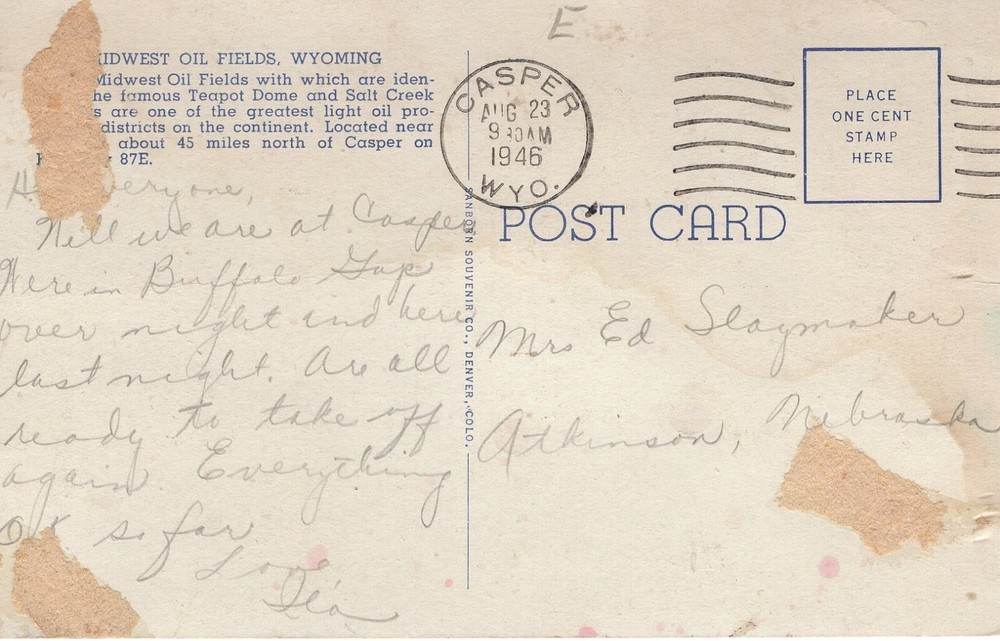 E
IDWEST OIL FIELDS, WYOMING
Midwest Oil Fields with which are iden-
he famous Teapot Dome and Salt Creek
s are one of the greatest light oil pro-
districts on the continent. Located near
about 45 miles north of Casper on
87E.
CASPER
AUG 23
9 30 AM
1946
WYO.
PLACE
ONE CENT
STAMP
HERE
POST CARD
SANBORN SOUVENIR CO., DENVER, COLO.
everyone,
Well we are at Casper
Were in Buffalo Gap
over night and here
last night. Are all
ready to take off
again. Everything
OK so far
Love,
Mrs Ed Slaymaker
Atkinson, Nebraska